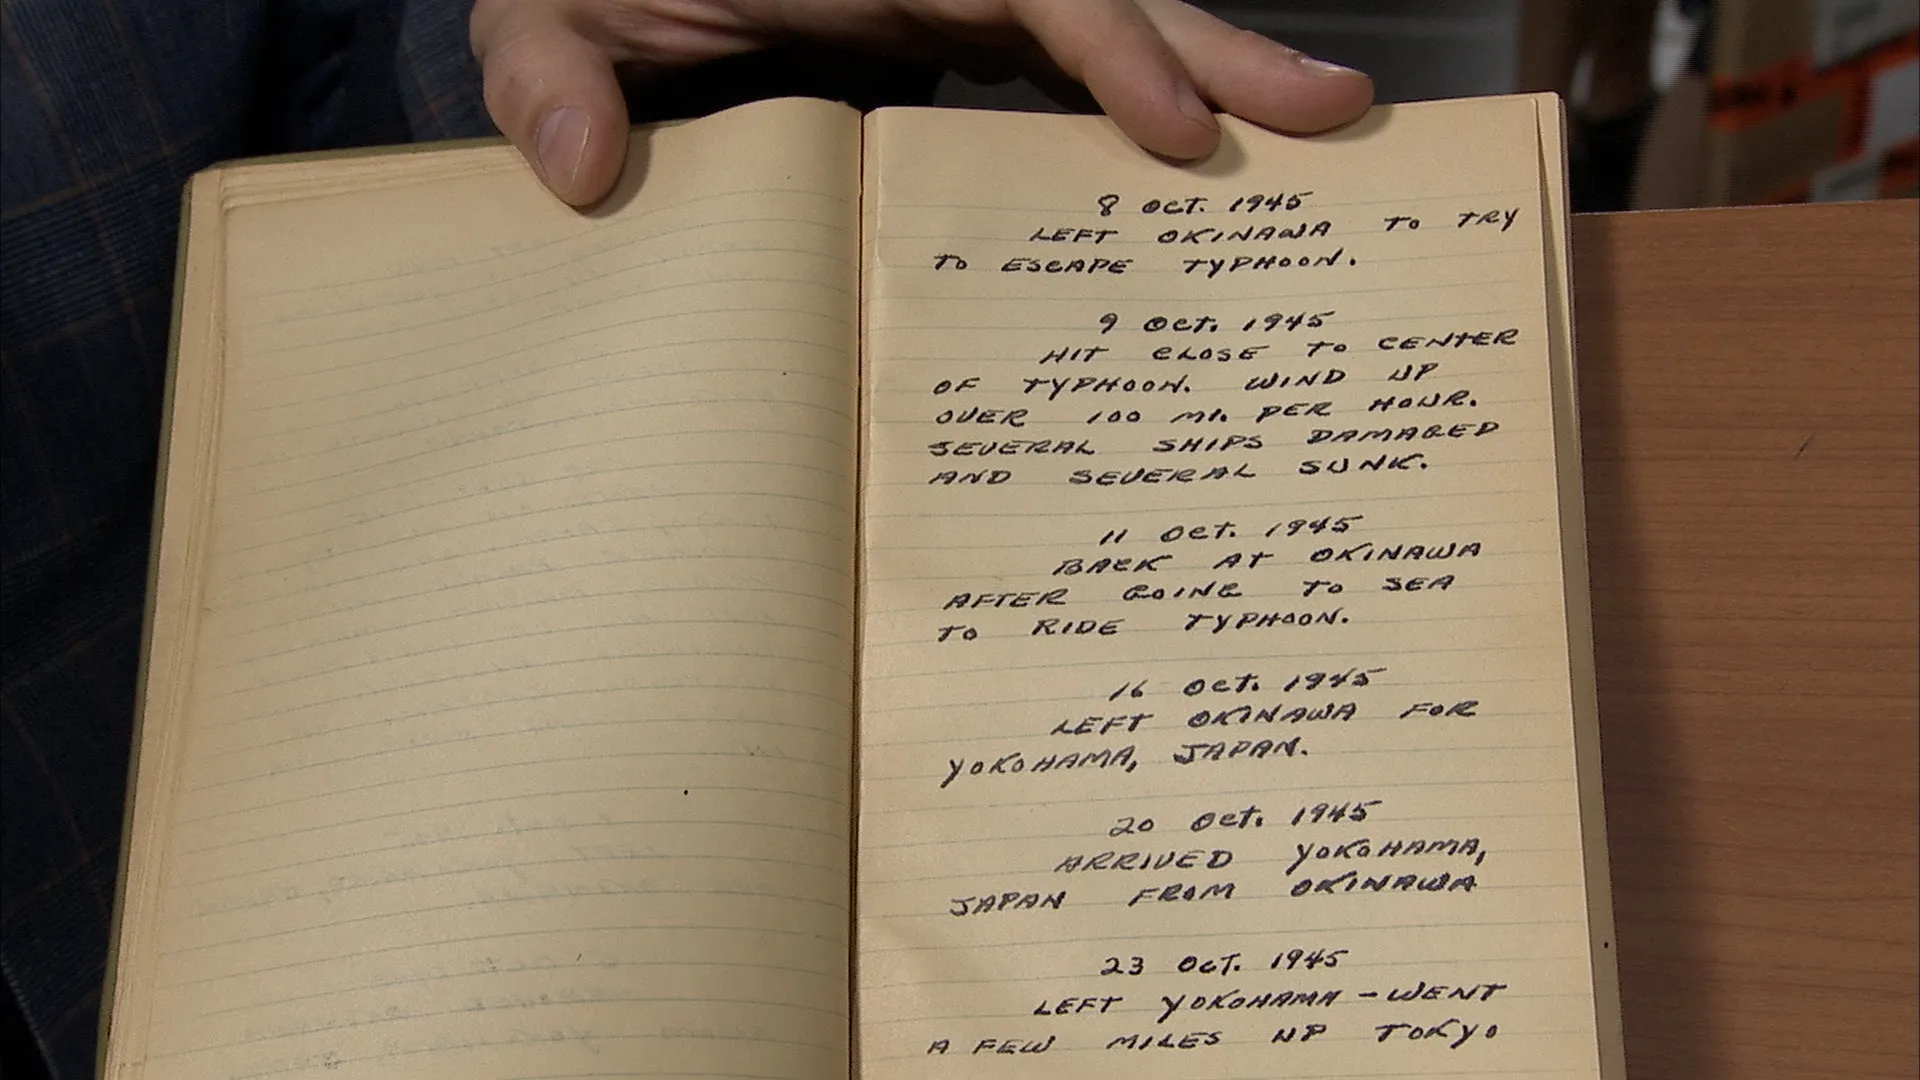 8 OCT. 1945
LEFT OKINAWA TO TRY
TO ESCAPE TYPHOON.
9 OCT. 1945
HIT CLOSE TO CENTER
OF TYPHOON. WIND UP
OVER 100 MI. PER HOUR.
SEVERAL SHIPS DAMAGED
AND SEVERAL SUNK.
11 OCT. 1945
BACK AT OKINAWA
AFTER GOING TO SEA
TO RIDE TYPHOON.
16 OCT. 1945
LEFT OKINAWA FOR
YOKOHAMA, JAPAN.
20 OCT. 1945
ARRIVED YOKOHAMA,
JAPAN FROM OKINAWA
23 OCT. 1945
LEFT YOKOHAMA – WENT
A FEW MILES UP TOKYO